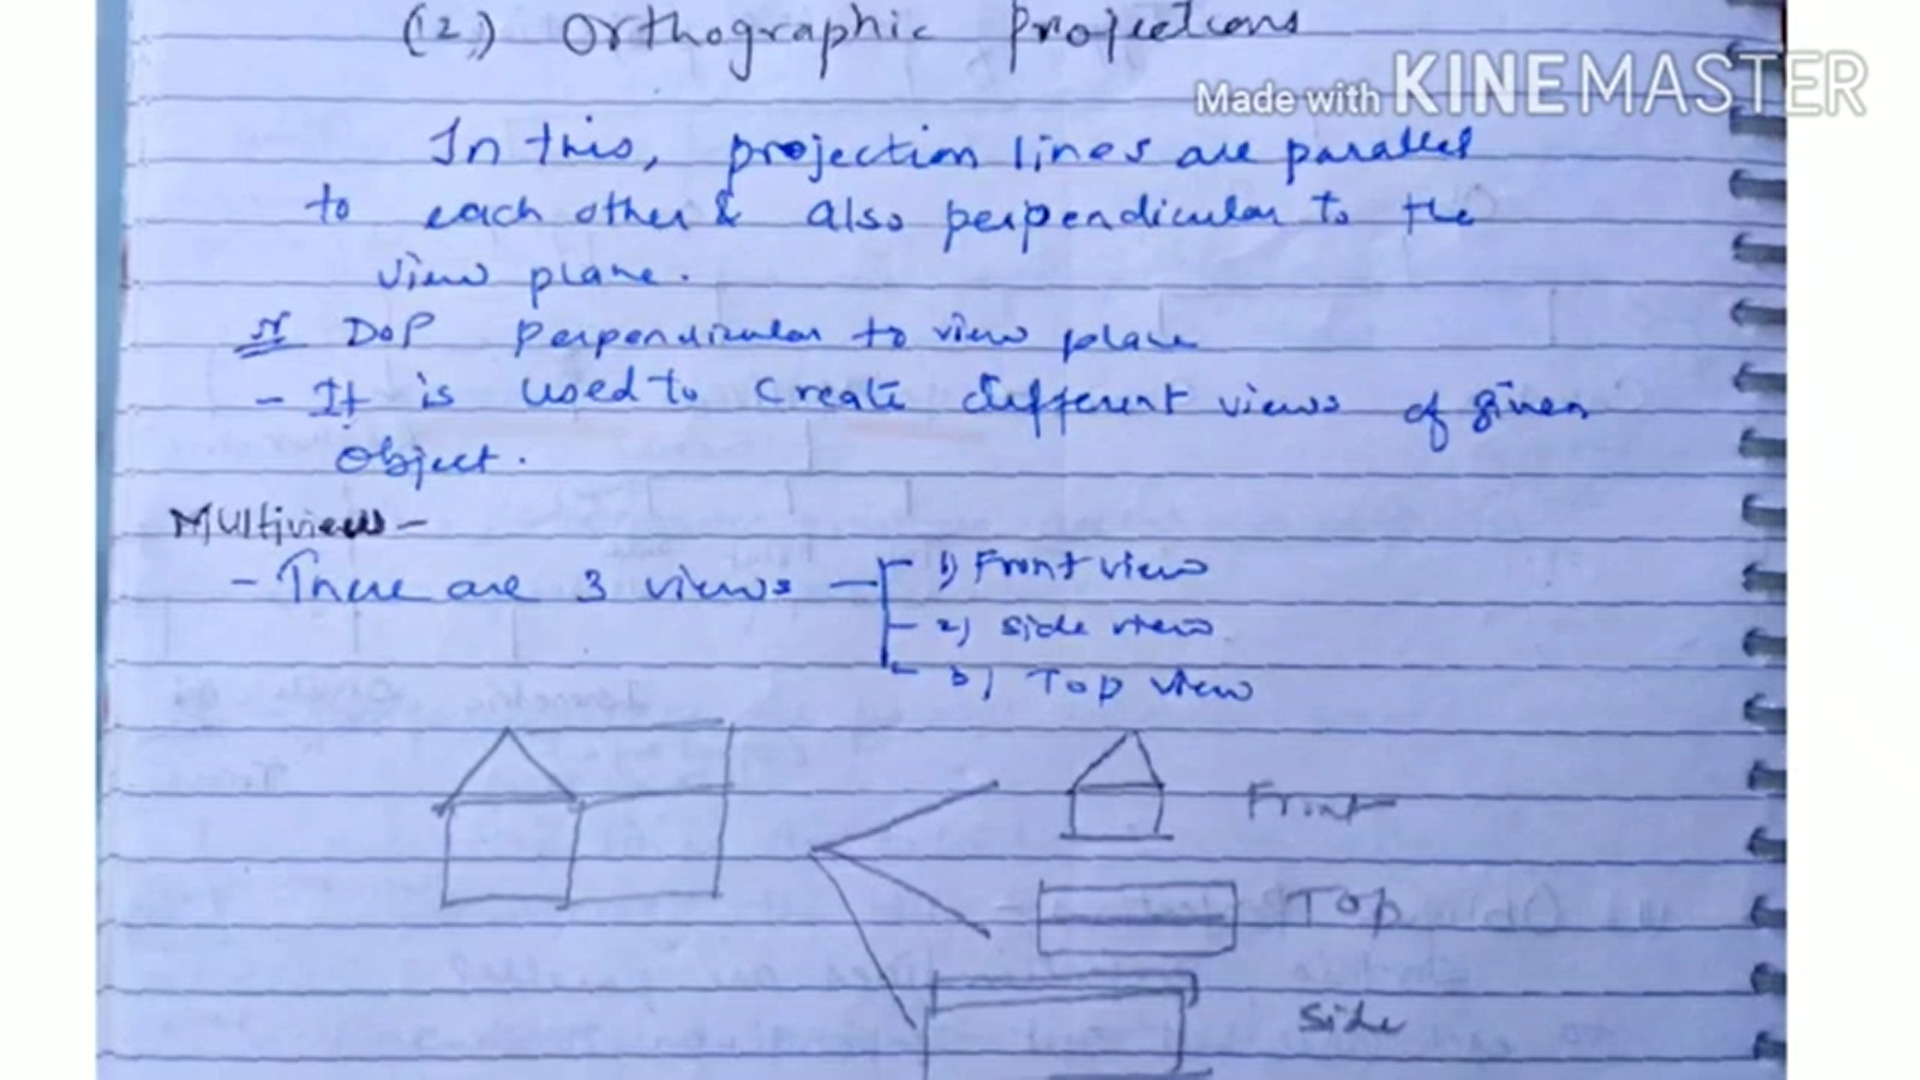 (2) Orthographic Projections
Made with KINEMASTER
In this, projection lines are parallel
to each other & also perpendicular to the
view plane.
DOP perpendicular to view plane
- It is used to create different views of given
object.
Multiview -
- There are 3 views - 1) Front view
2) side view
3) Top view
Front
Top
Side